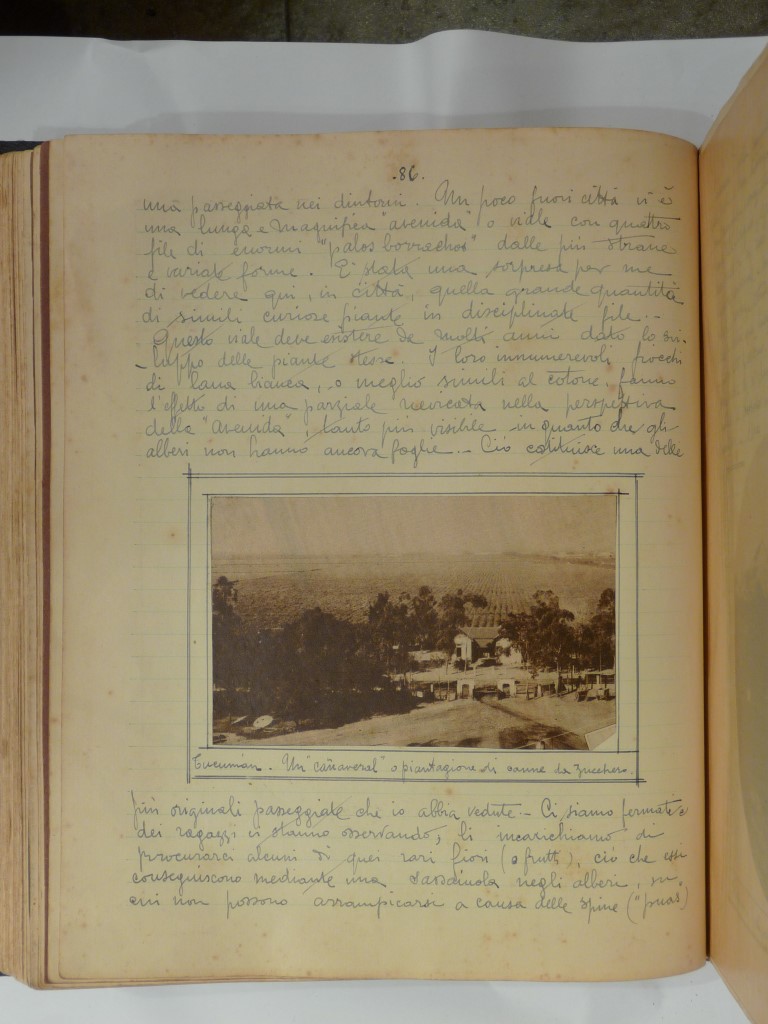 .86.
una passeggiata nei dintorni. Un poco fuori città vi è
una lunga e magnifica "avenida" o viale con quattro
file di enormi "palos borrachos" dalle più strane
e variate forme. È stata una sorpresa per me
di vedere qui, in città, quella grande quantità
di simili curiose piante in disciplinate file.-
Questo viale deve esistere da molti anni dato lo svi-
luppo delle piante stesse. I loro innumerevoli fiocchi
di lana bianca, o meglio simili al cotone, fanno
l'effetto di una parziale nevicata nella perspettiva
della "Avenida", tanto più visibile in quanto che gli
alberi non hanno ancora foglie.- Ciò costituisce una delle
Tucumán. Un "cañaveral" o piantagione di canne da zucchero.
più originali passeggiate che io abbia vedute.- Ci siamo fermati e
dei ragazzi ci stanno osservando, li incarichiamo di
procurarci alcuni di quei rari fiori (o frutti), ciò che essi
conseguiscono mediante una sassaiuola negli alberi, su
cui non possono arrampicarsi a causa delle spine ("puas")